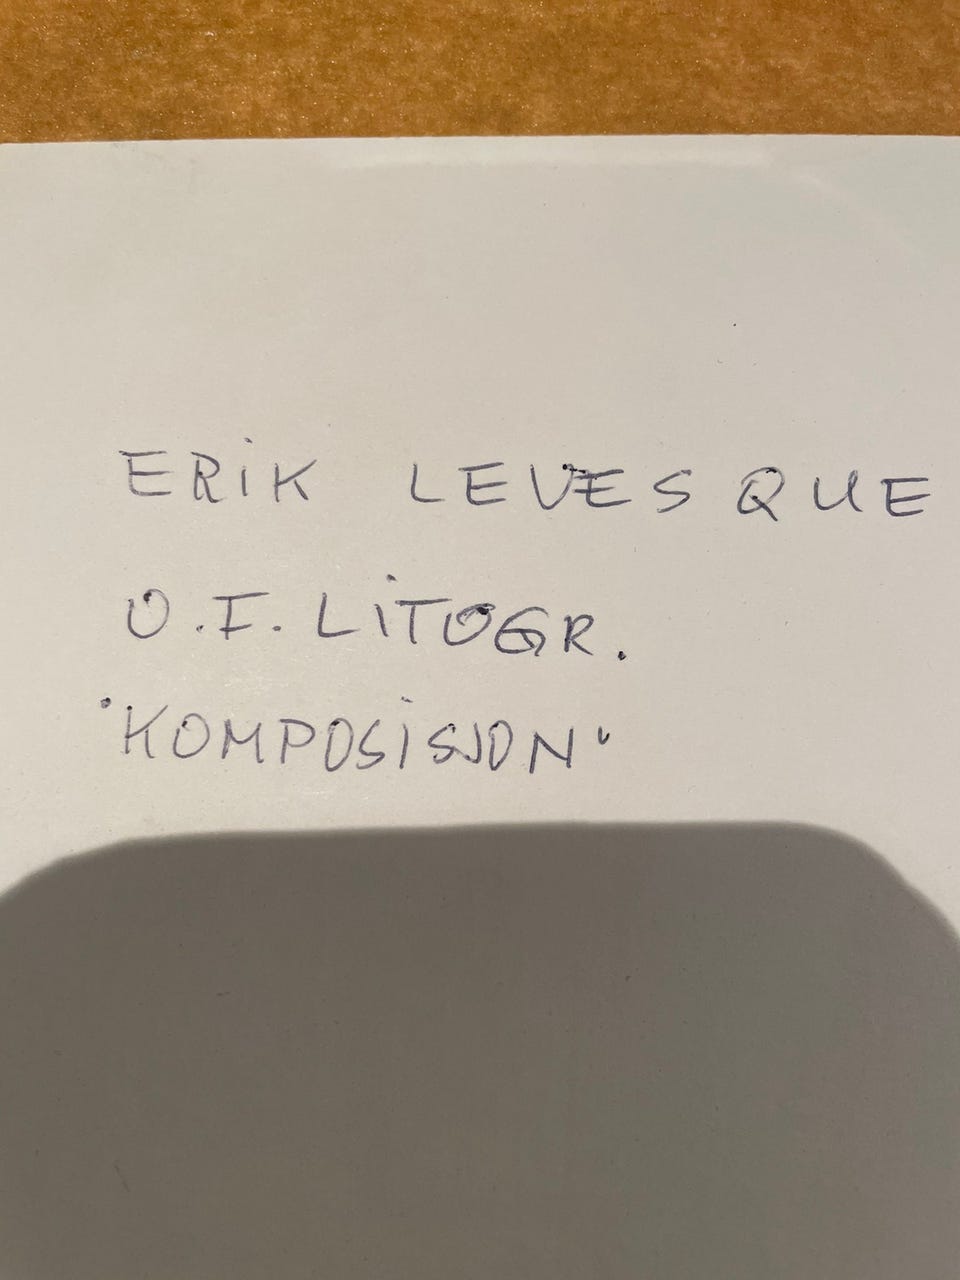 ERIK LEVESQUE
O.F. LITOGR.
"KOMPOSISJON"